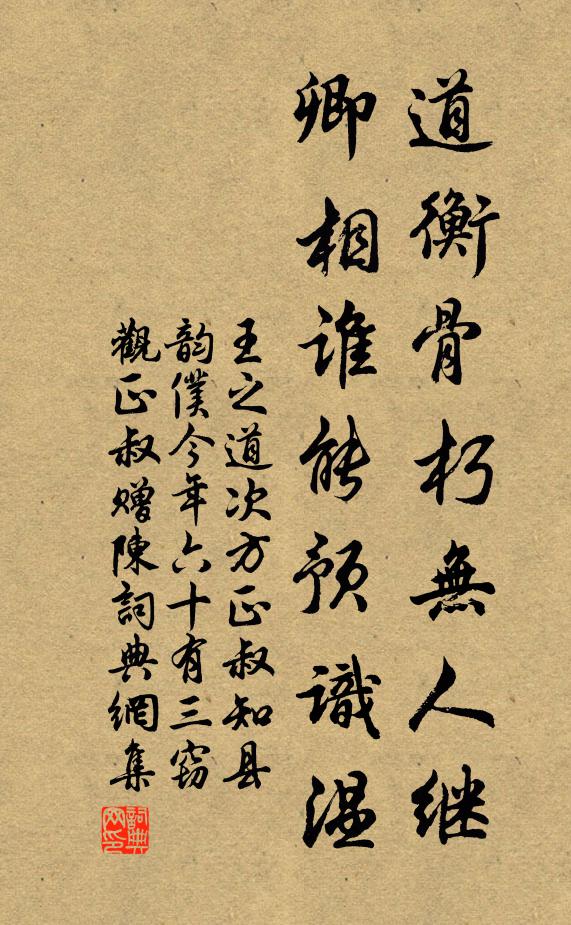 道衡骨朽無人继
卿相谁能预識温
王之道次方正叔知县
韵僕今年六十有三窃
觀正叔赠陳詞典網集
詞典網印